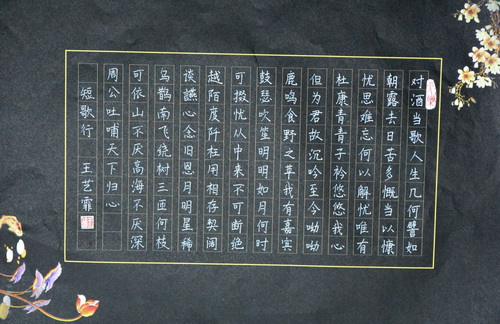 对酒当歌人生几何譬如
朝露去日苦多慨当以慷
忧思难忘何以解忧唯有
杜康青青子衿悠悠我心
但为君故沉吟至今呦呦
鹿鸣食野之苹我有嘉宾
鼓瑟吹笙明明如月何时
可掇忧从中来不可断绝
越陌度阡枉用相存契阔
谈讌心念旧恩月明星稀
乌鹊南飞绕树三匝何枝
可依山不厌高海不厌深
周公吐哺天下归心
短歌行 王艺霏